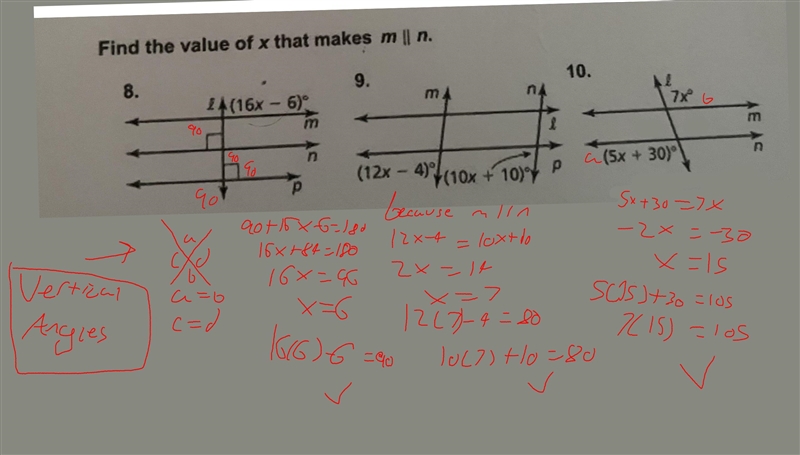 Find the value of x that makes m || n.
8.
ℓ (16x − 6)°
90
m
90
n
90
90
p
9.
m
n
ℓ
(12x − 4)°
(10x + 10)°
p
10.
ℓ
7x° b
m
a (5x + 30)°
n
Vertical
Angles
a
c d
b
a=b
c=d
90+16x-6=180
16x+84=180
16x=96
x=6
16(6)-6=90
because m//n
12x-4=10x+10
2x=14
x=7
12(7)-4=80
10(7)+10=80
5x+30=7x
-2x=-30
x=15
5(15)+30=105
7(15)=105